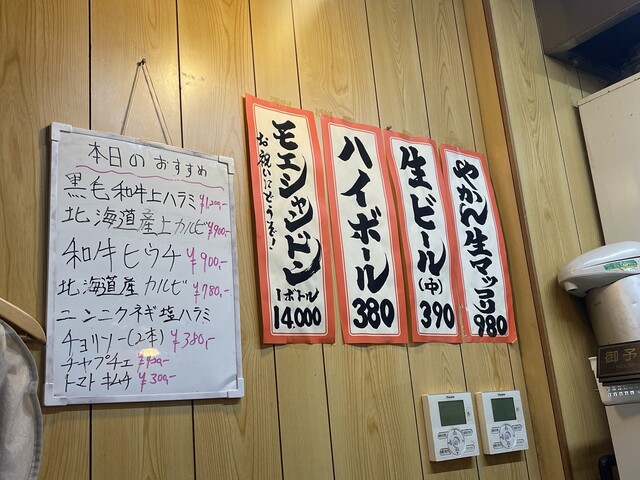 本日のおすすめ
黒毛和牛上ハラミ ¥1,200-
北海道産上カルビ ¥900-
和牛ヒウチ ¥900-
北海道産カルビ ¥780-
ニンニクネギ塩ハラミ
チョリソー(2本) ¥380-
チャプチェ
トマトキムチ ¥300-
モエシャンドン
お祝いにどうぞ!
1ボトル
14,000
ハイボール
380
生ビール(中)
390
やかん生マッコリ
980
御予